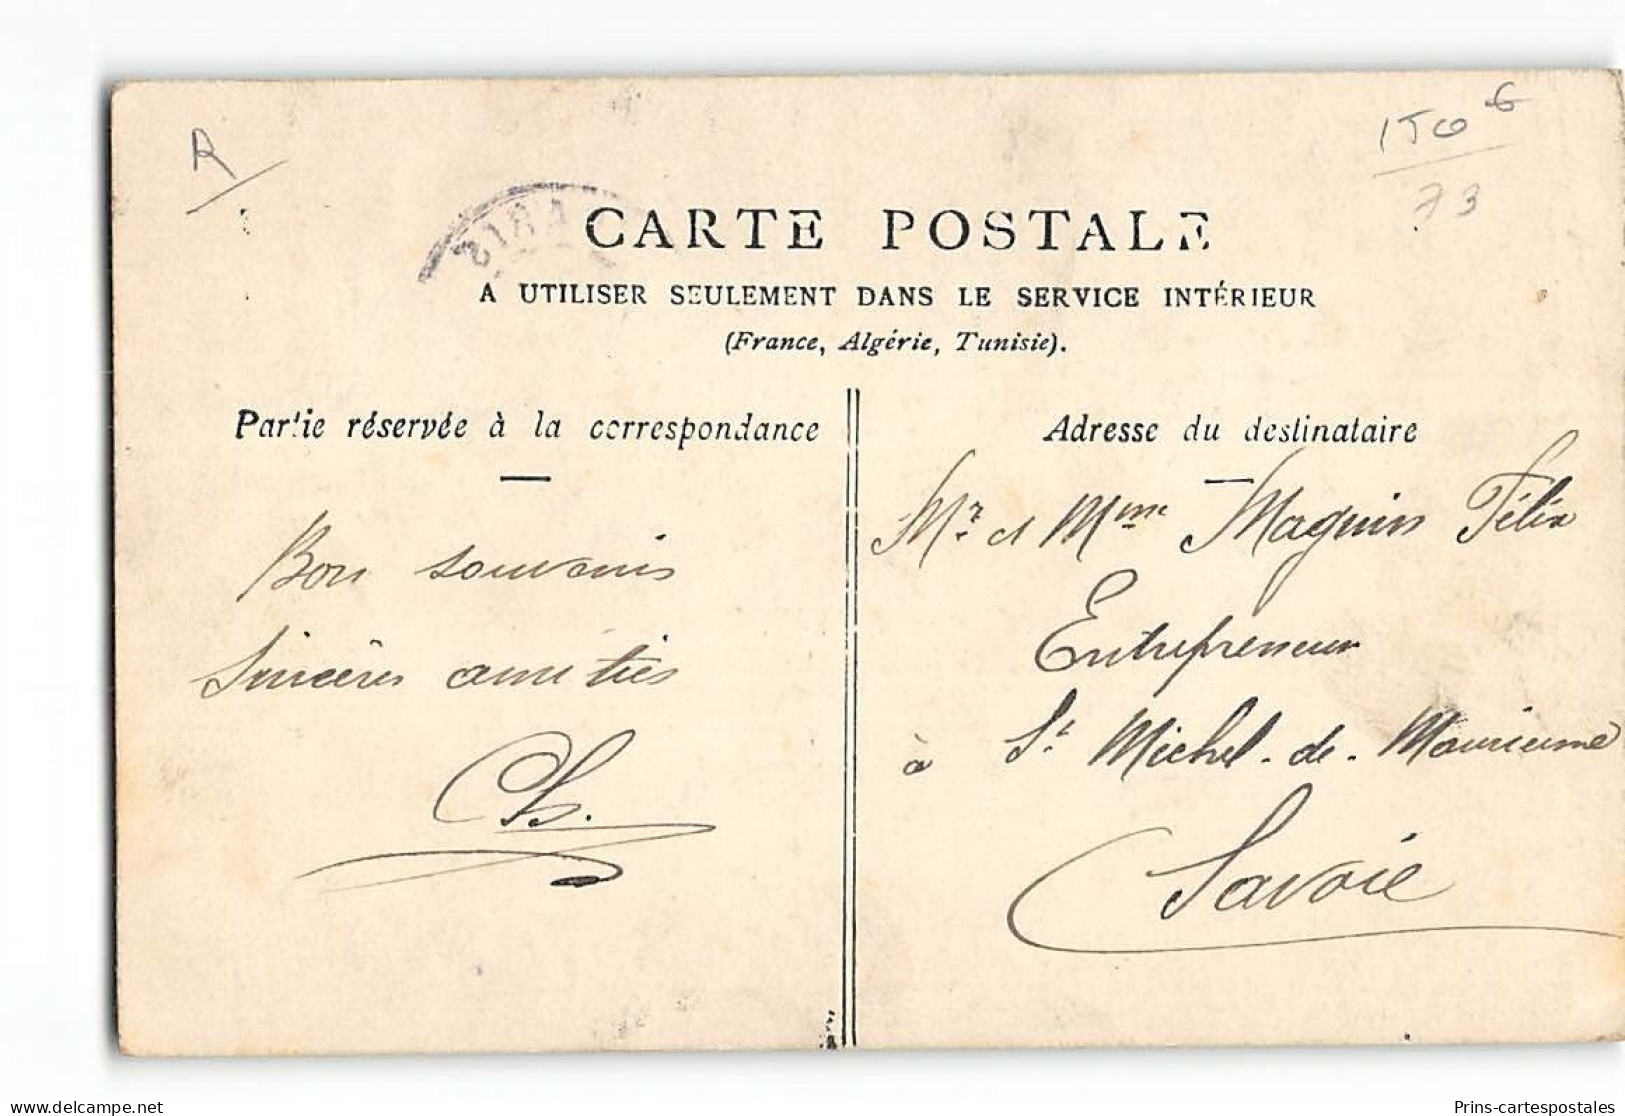 R
150 6
73
CARTE POSTALE
A UTILISER SEULEMENT DANS LE SERVICE INTÉRIEUR
(France, Algérie, Tunisie).
Partie réservée à la correspondance
Bon souvenir
Sincères amitiés
Ch.
Adresse du destinataire
Mr. et Mme Magnin Félix
Entrepreneur
à St Michel-de-Maurienne
Savoie
delcampe.net
Prins-cartespostales